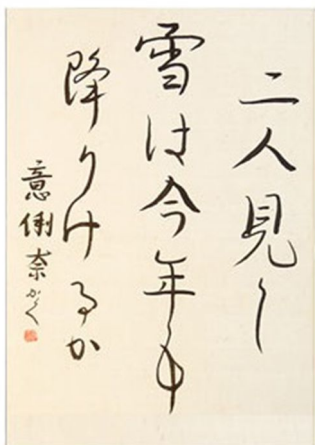 二人見し
雪は今年も
降りけるか
意俐奈かく